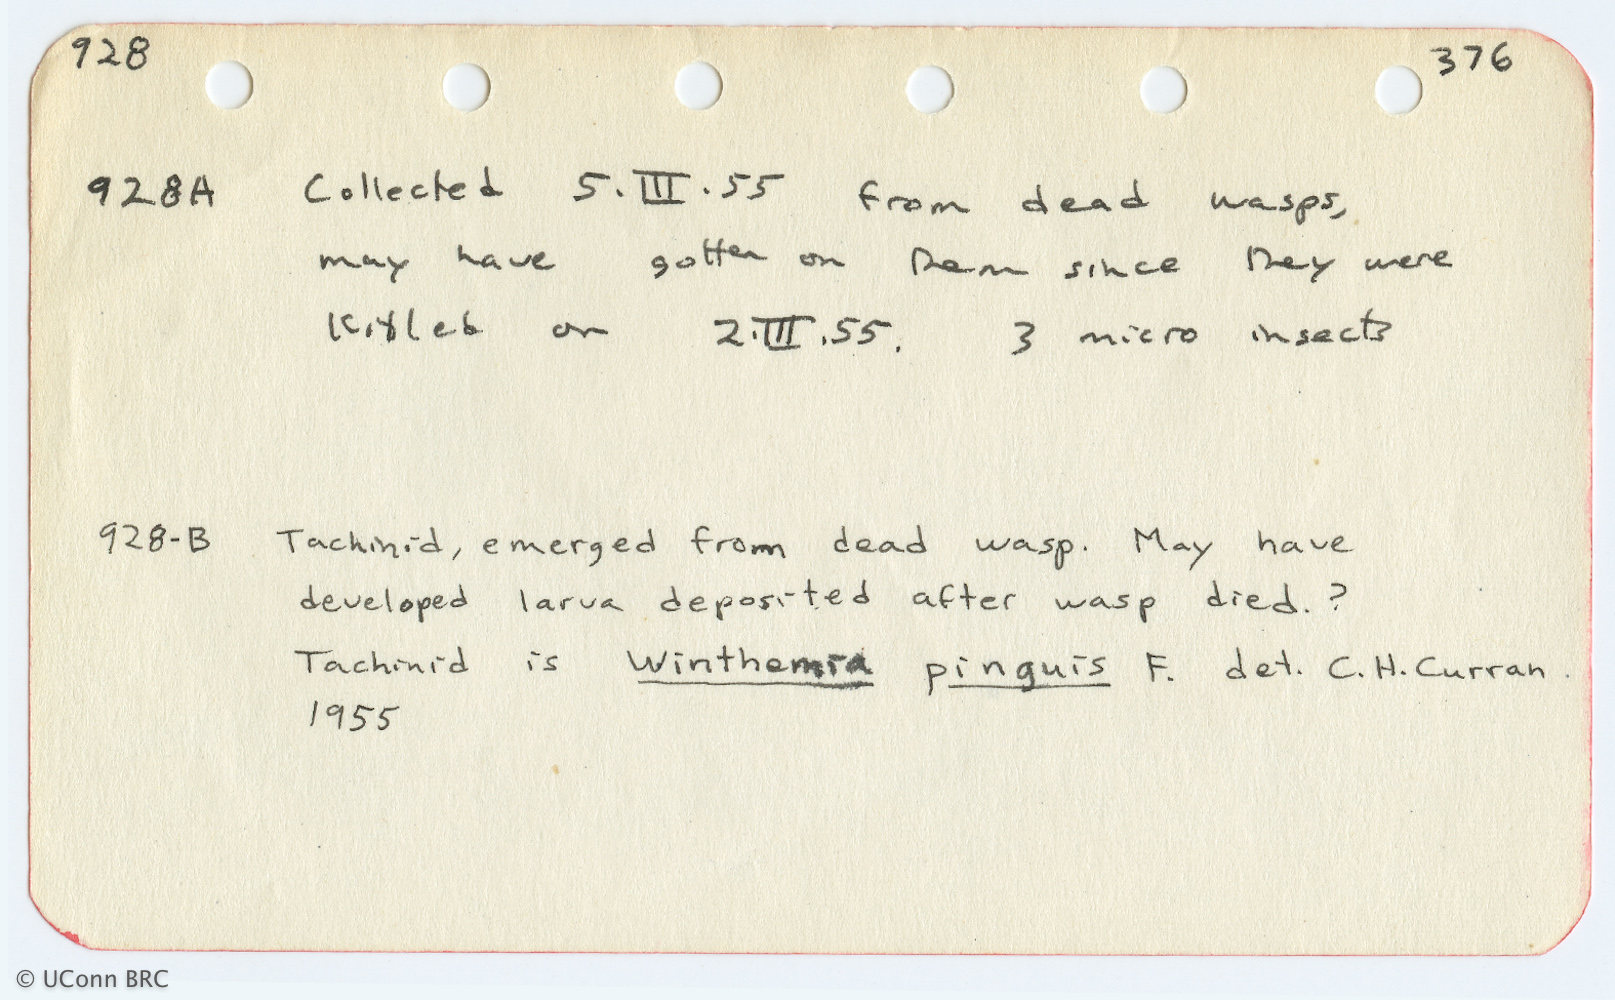 928 376
928A Collected 5.III.55 from dead wasps,
may have gotten on them since they were
killed on 2.III.55. 3 micro insects
928-B Tachinid, emerged from dead wasp. May have
developed larva deposited after wasp died.?
Tachinid is Winthemia pinguis F. det. C.H.Curran.
1955
© UConn BRC